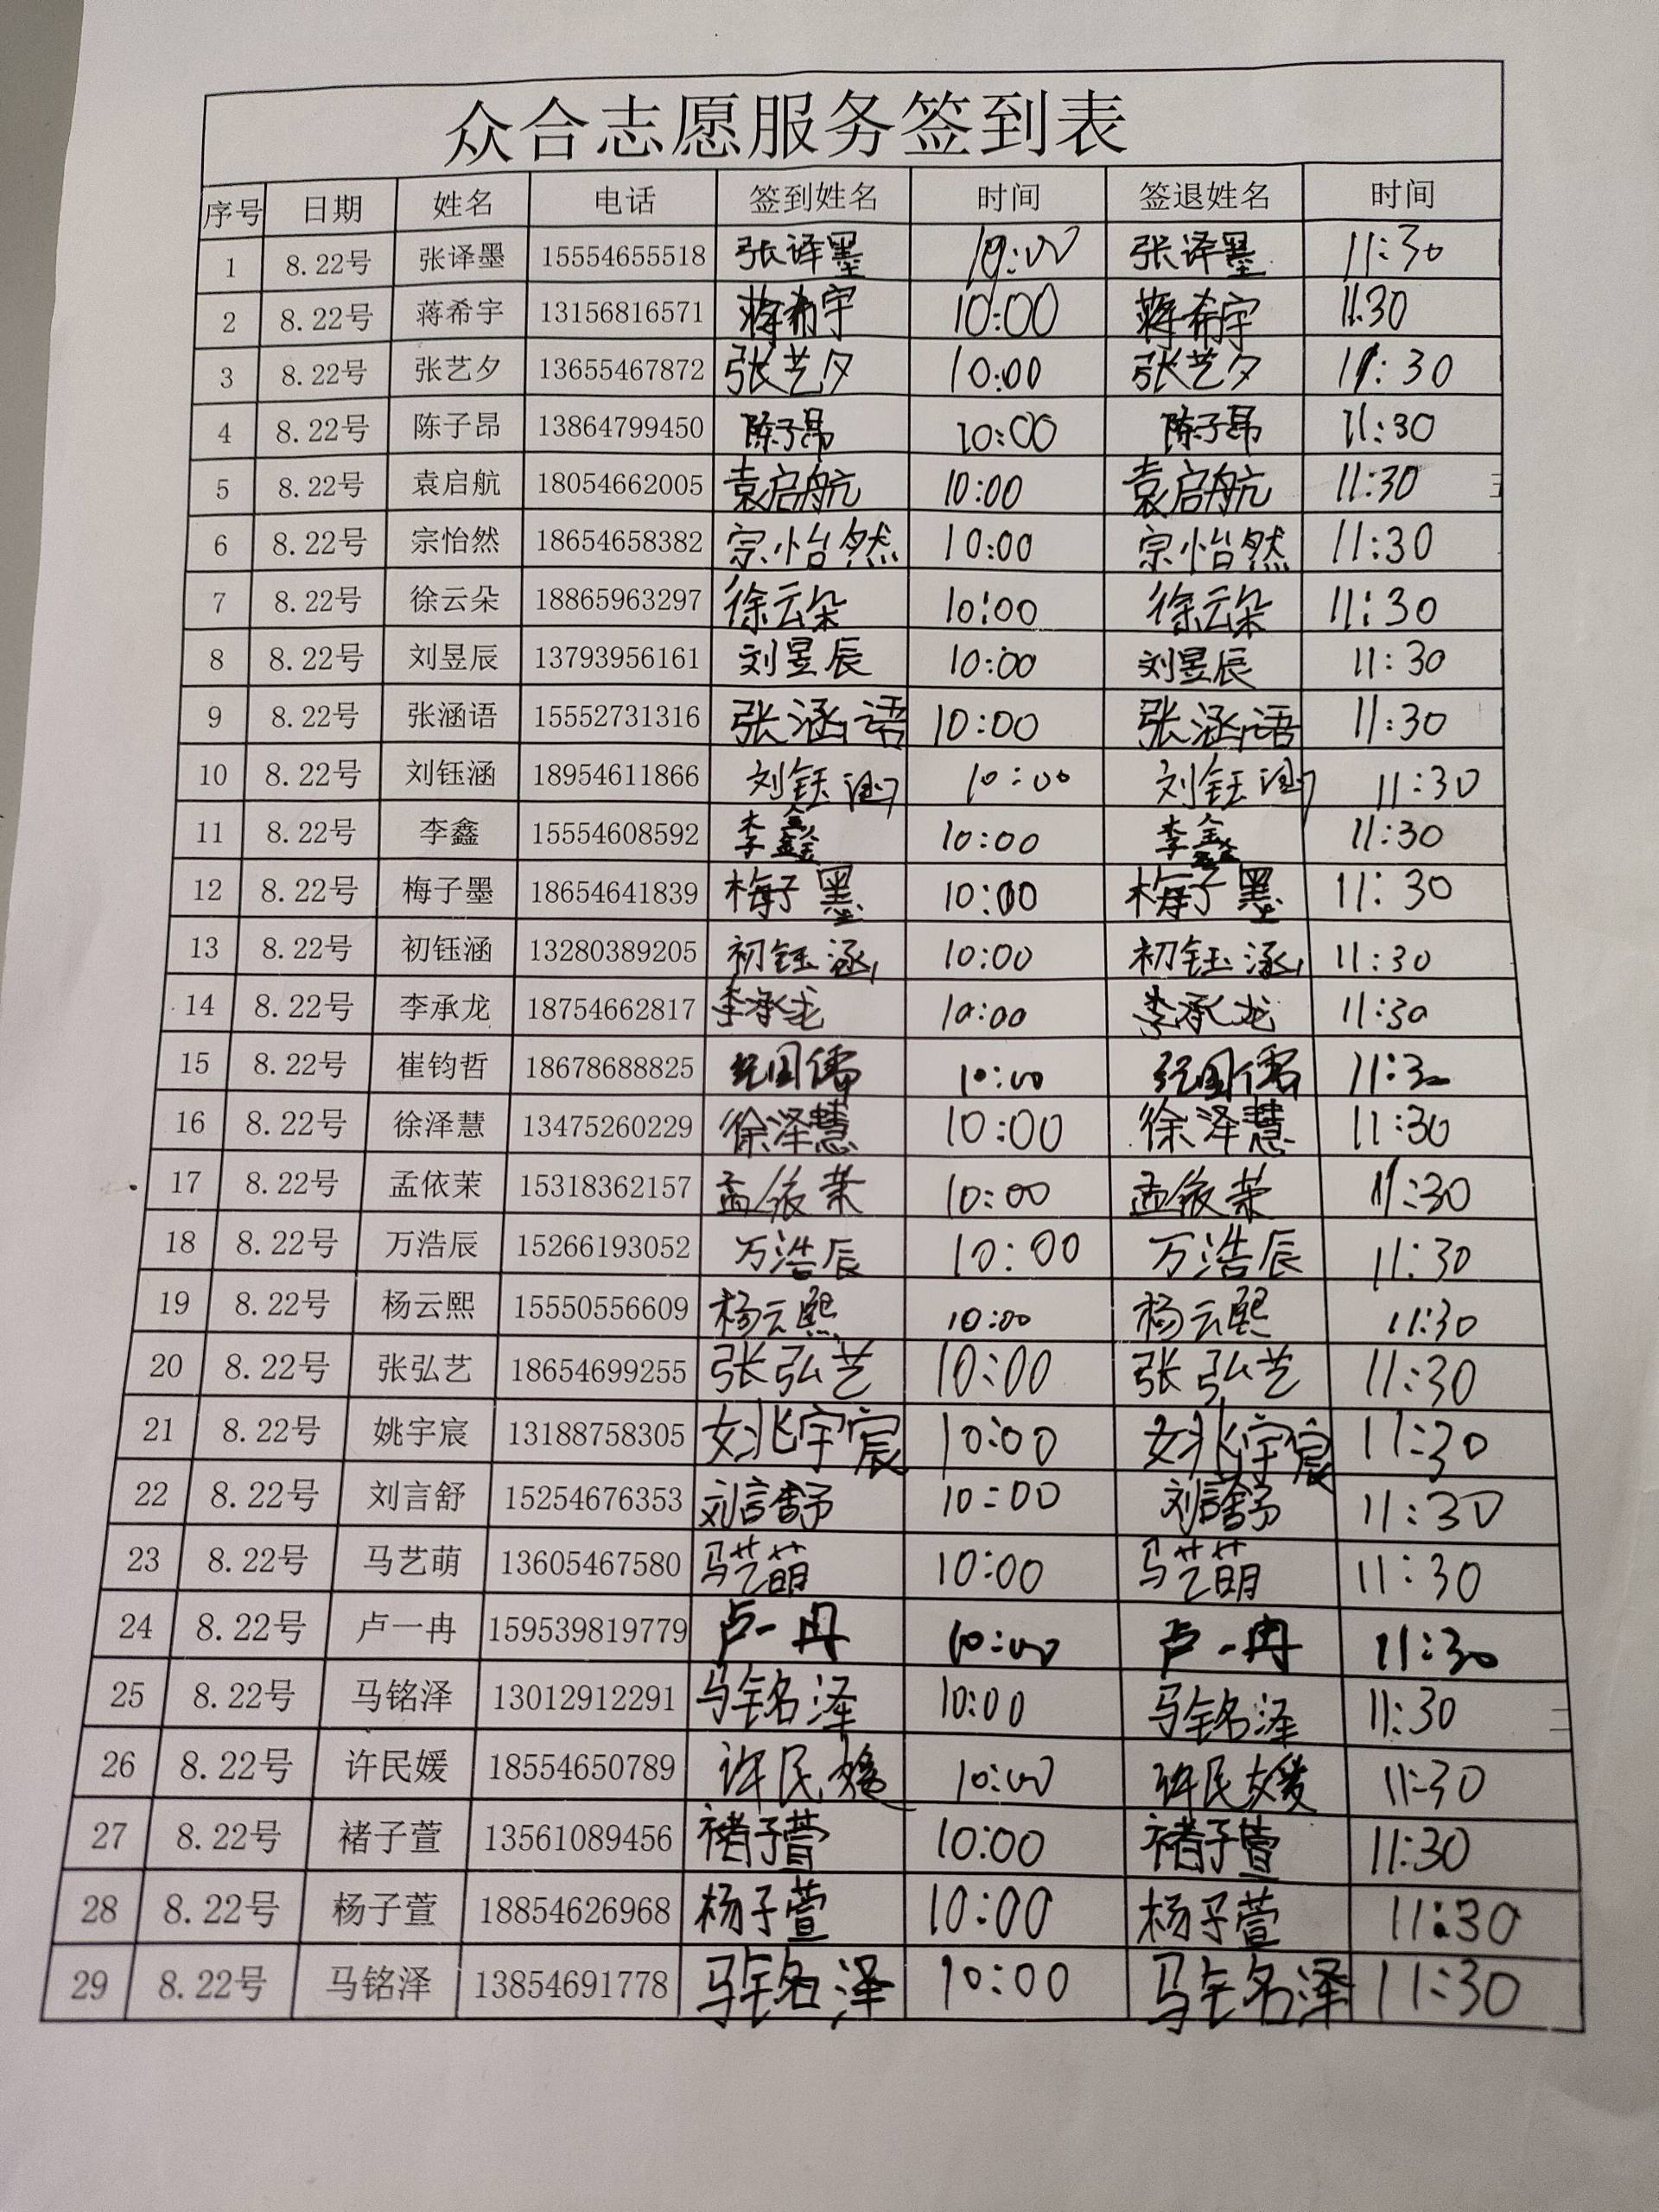 众合志愿服务签到表
序号 日期 姓名 电话 签到姓名 时间 签退姓名 时间
1 8.22号 张译墨 15554655518 张译墨 10:00 张译墨 11:30
2 8.22号 蒋希宇 13156816571 蒋希宇 10:00 蒋希宇 11:30
3 8.22号 张艺夕 13655467872 张艺夕 10:00 张艺夕 11:30
4 8.22号 陈子昂 13864799450 陈子昂 10:00 陈子昂 11:30
5 8.22号 袁启航 18054662005 袁启航 10:00 袁启航 11:30
6 8.22号 宗怡然 18654658382 宗怡然 10:00 宗怡然 11:30
7 8.22号 徐云朵 18865963297 徐云朵 10:00 徐云朵 11:30
8 8.22号 刘昱辰 13793956161 刘昱辰 10:00 刘昱辰 11:30
9 8.22号 张涵语 15552731316 张涵语 10:00 张涵语 11:30
10 8.22号 刘钰涵 18954611866 刘钰涵 10:00 刘钰涵 11:30
11 8.22号 李鑫 15554608592 李鑫 10:00 李鑫 11:30
12 8.22号 梅子墨 18654641839 梅子墨 10:00 梅子墨 11:30
13 8.22号 初钰涵 13280389205 初钰涵 10:00 初钰涵 11:30
14 8.22号 李承龙 18754662817 李承龙 10:00 李承龙 11:30
15 8.22号 崔钧哲 18678688825 10:00 11:30
16 8.22号 徐泽慧 13475260229 徐泽慧 10:00 徐泽慧 11:30
17 8.22号 孟依茉 15318362157 孟依茉 10:00 孟依茉 11:30
18 8.22号 万浩辰 15266193052 万浩辰 10:00 万浩辰 11:30
19 8.22号 杨云熙 15550556609 杨云熙 10:00 杨云熙 11:30
20 8.22号 张弘艺 18654699255 张弘艺 10:00 张弘艺 11:30
21 8.22号 姚宇宸 13188758305 姚宇宸 10:00 姚宇宸 11:30
22 8.22号 刘言舒 15254676353 刘言舒 10:00 刘言舒 11:30
23 8.22号 马艺萌 13605467580 马艺萌 10:00 马艺萌 11:30
24 8.22号 卢一冉 159539819779 卢一冉 10:00 卢一冉 11:30
25 8.22号 马铭泽 13012912291 马铭泽 10:00 马铭泽 11:30
26 8.22号 许民媛 18554650789 许民媛 10:00 许民媛 11:30
27 8.22号 褚子萱 13561089456 褚子萱 10:00 褚子萱 11:30
28 8.22号 杨子萱 18854626968 杨子萱 10:00 杨子萱 11:30
29 8.22号 马铭泽 13854691778 马铭泽 10:00 马铭泽 11:30